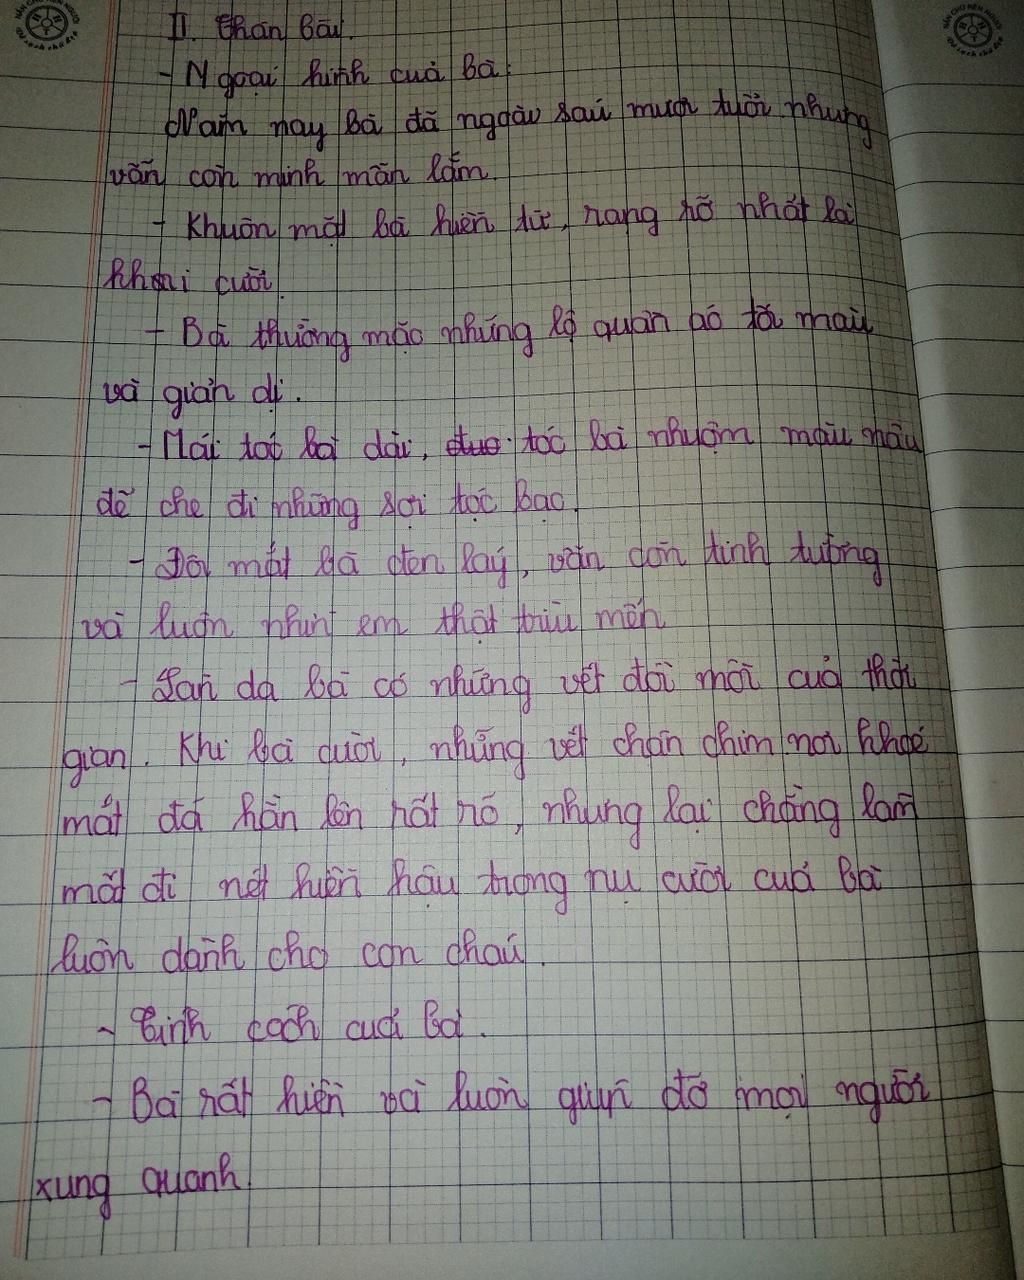 II. Thân Bài.
- Ngoại hình của bà:
Năm nay bà đã ngoài sáu mươi tuổi nhưng
vẫn còn minh mẫn lắm.
- Khuôn mặt bà hiền từ, rạng rỡ nhất là
khi cười.
- Bà thường mặc những bộ quần áo tối màu
và giản dị.
- Mái tóc bà dài, tóc bà nhuộm màu nâu
để che đi những sợi tóc bạc.
- Đôi mắt bà đen láy, vẫn còn tinh tường
và luôn nhìn em thật trìu mến
- Làn da bà có những vết đồi mồi của thời
gian. Khi bà cười, những vết chân chim nơi khoé
mắt đã hằn lên rất rõ, nhưng lại chẳng làm
mất đi nét hiền hậu trong nụ cười của bà
luôn dành cho con cháu.
- Tính cách của bà.
- Bà rất hiền và luôn giúp đỡ mọi người
xung quanh.